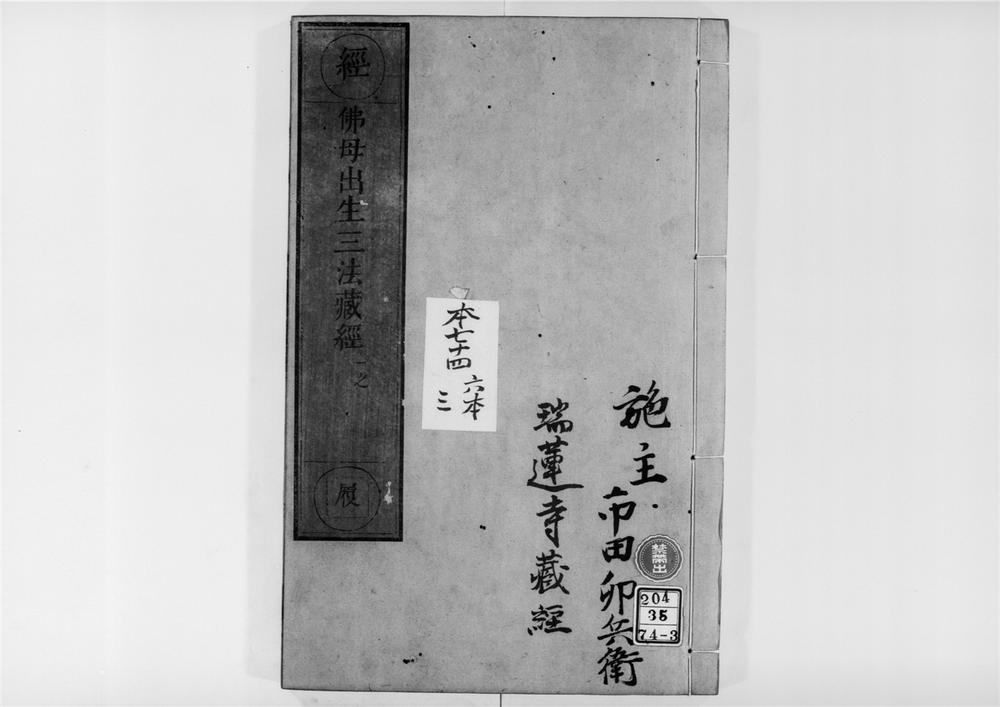 施主
市田卯兵衛
瑞蓮寺藏經
禁帶出
204
35
74-3
本七十四
六本
三
經
佛母出生三法藏經
一之
履